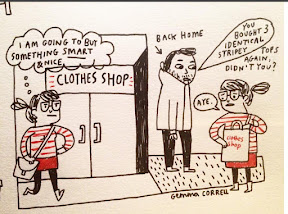 I AM GOING TO BUT
SOMETHING SMART
& NICE
CLOTHES SHOP
BACK HOME
YOU
BOUGHT 3
IDENTICAL
STRIPEY TOPS
AGAIN,
DIDN'T YOU?
AYE.
clothes
shop
GEMMA CORRELL